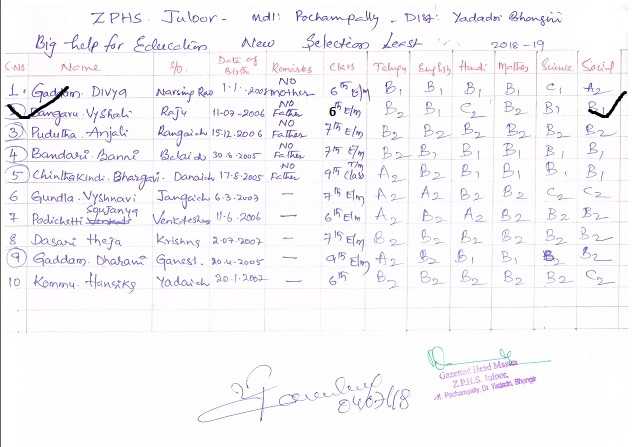 ZPHS. Juloor - Mdl: Pochampally, Dist: Yadadri Bhongiri
Big help for Education New Selection Least 2018-19
S.NO Name S/o. Date of Birth Remarks Class Telugu English Hindi Maths Science Social
1. Gaddam. Divya Narsing Rao 1.1.2005 NO Mother 6th E/m B1 B1 B1 B1 C1 A2
Bangaru. Vyshali Raju 11-07-2006 NO Father 6th E/m B2 B1 C2 B2 B1 B1
3 Pudutha. Anjali Rangaich 15.12.2006 NO Father 7th E/m B2 B2 B2 B2 B2 B2
4 Bandari. Banni Balaich 30.8.2005 NO Father 7th E/m B2 B1 B1 B1 B1 B1
5 Chinthakindi. Bhargavi Danaich 17.8.2005 NO Father 9th T/m Class A2 B1 B1 B1 B1 B1
6 Gundla. Vyshnavi Jangaich 6.3.2007 — 7th E/m A2 A2 B2 B2 C2 C2
7 Podichetti Soujanya Venkatesh 11.6.2006 — 6th E/m A2 B2 A2 B2 B2 B2
8 Dasari theja Krishna 2.07.2007 — 7th E/m B2 B2 B2 B2 B2 B2
9 Gaddam. Dharani Ganesh 20.4.2005 — 9th E/m A2 B2 B1 B1 B2 B2
10 Kommu. Hansika Yadaich 20.1.2007 — 6th B2 B2 B2 B2 B2 C2
04/07/18
Gazetted Head Master
Z.P.H.S. Juloor,
M. Pochampally, Dt. Yadadri, Bhongir